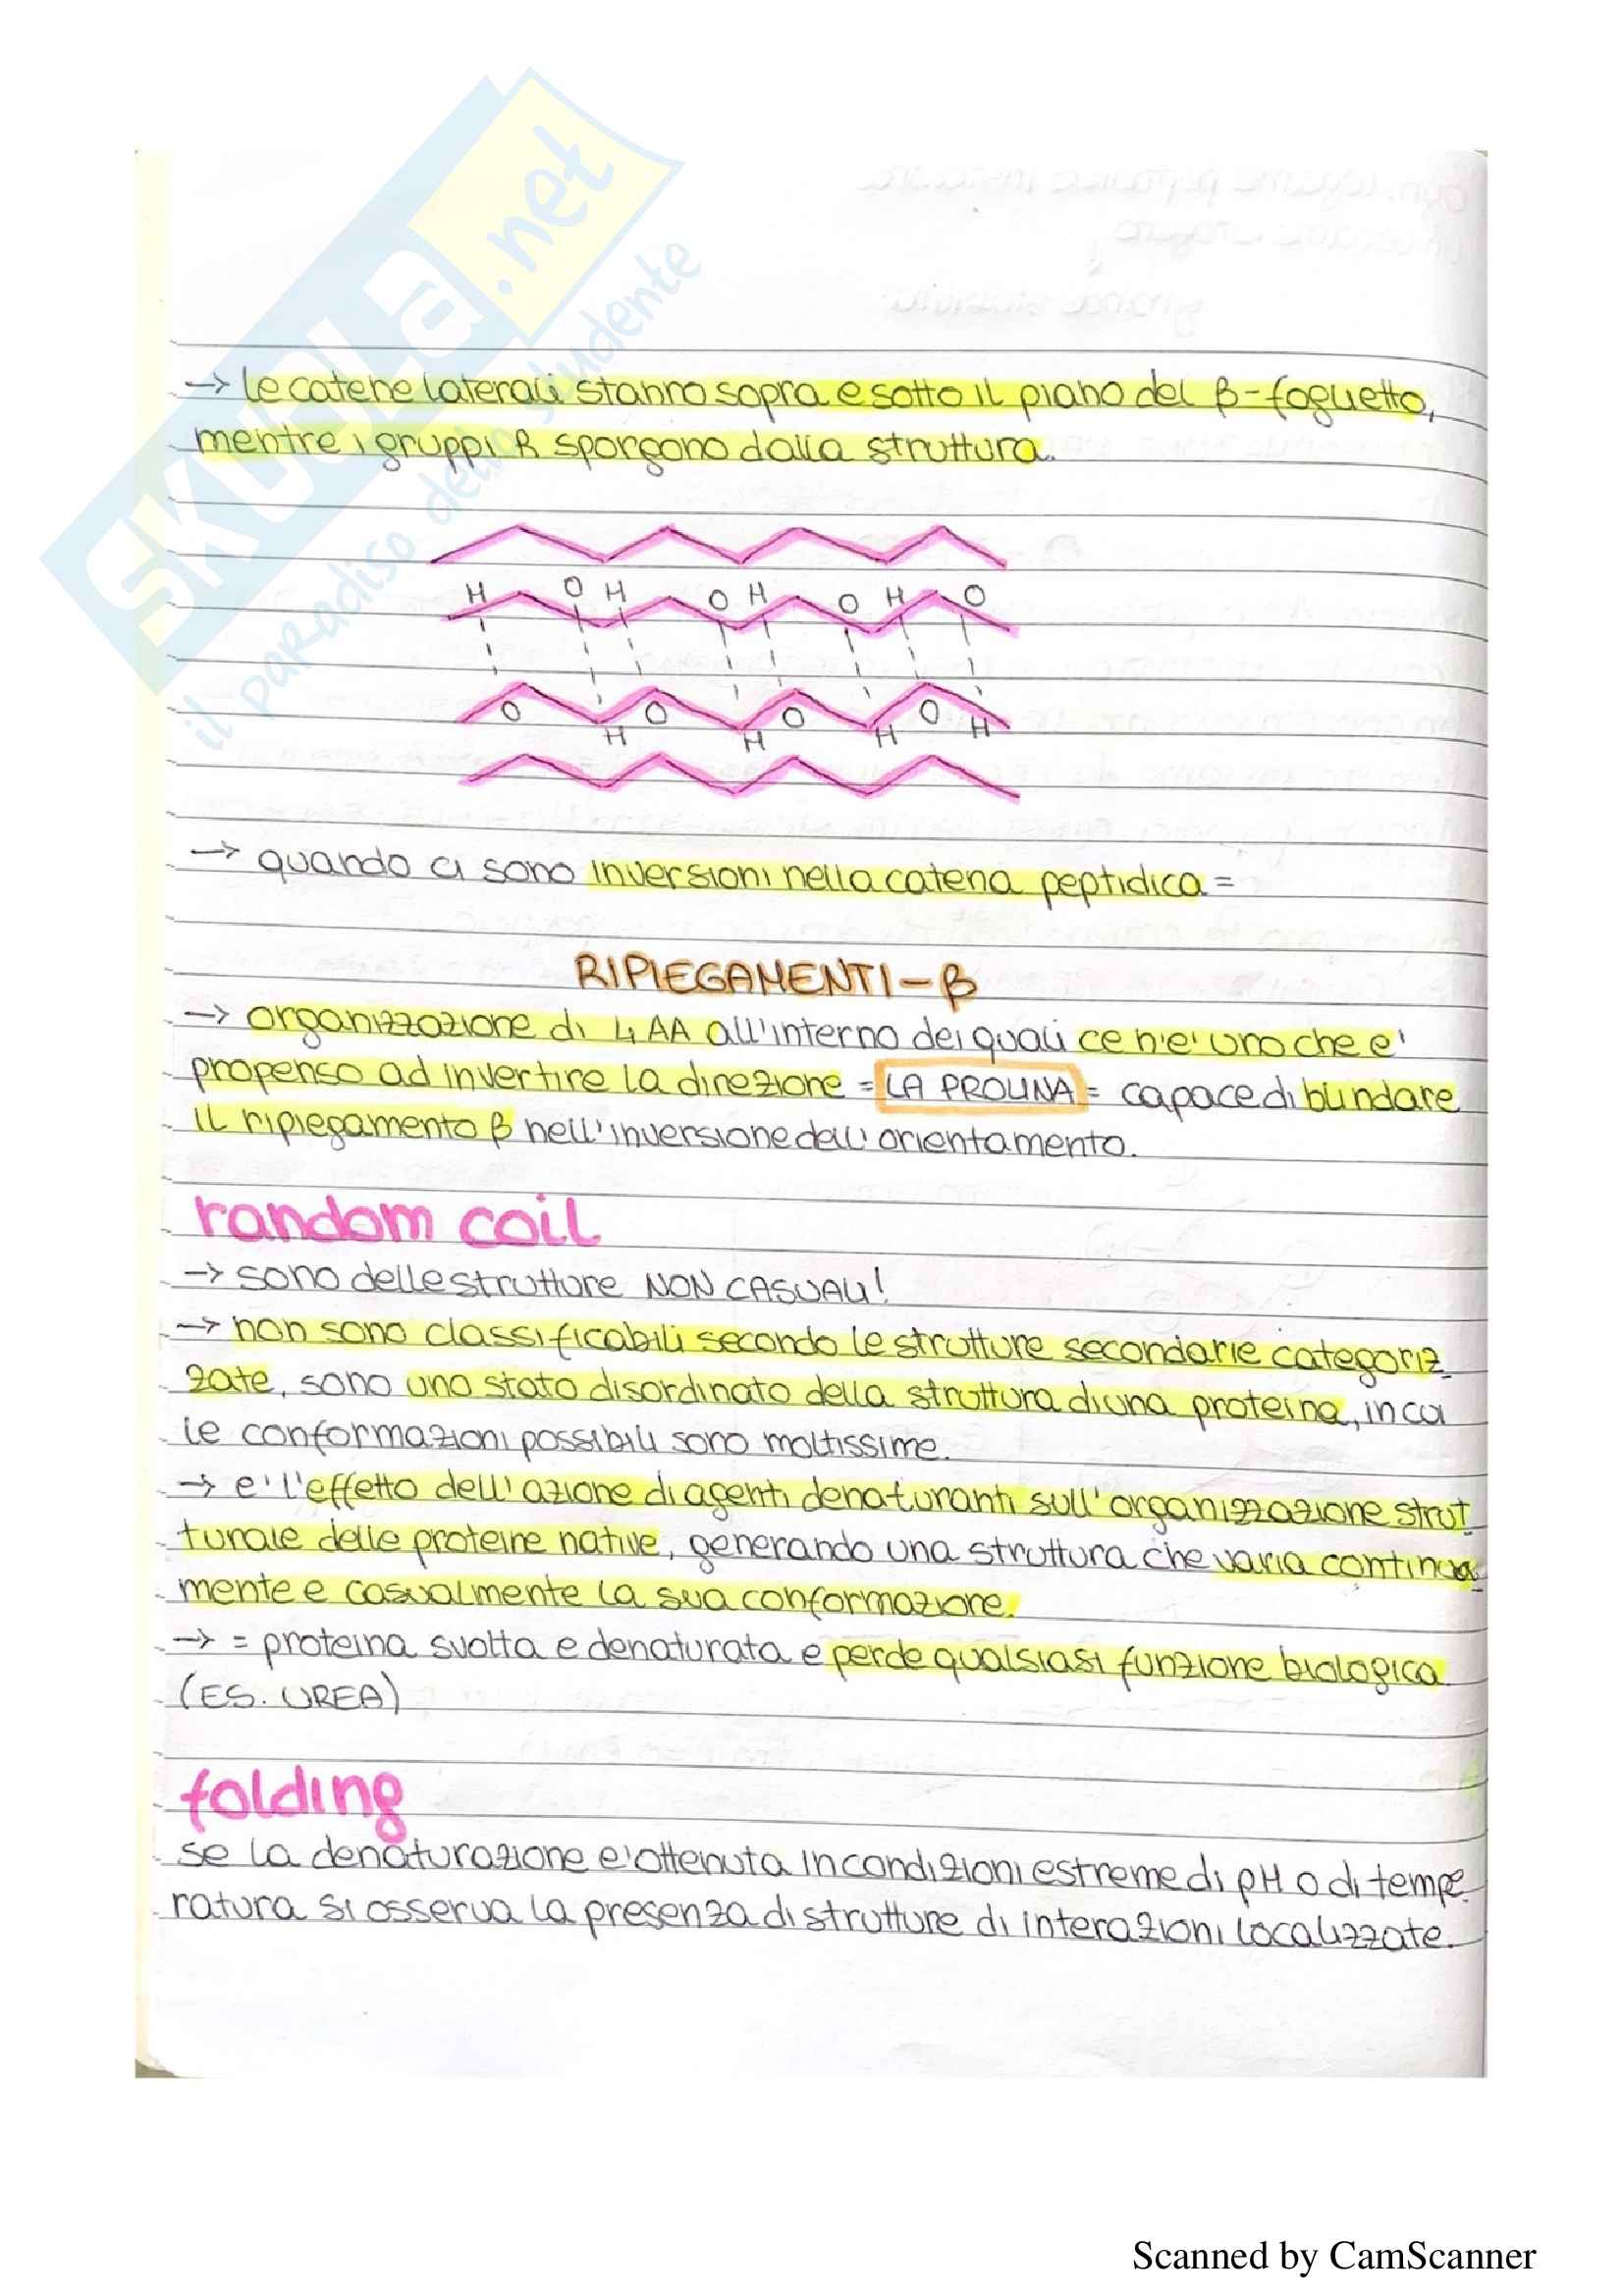 SKUOLA.net
il paradiso dello studente
→ le catene laterali stanno sopra e sotto il piano del β-foglietto,
mentre i gruppi R sporgono dalla struttura.
H O H O H O H O
O O O O
H H H H
→ quando ci sono inversioni nella catena peptidica =
RIPIEGAMENTI-β
→ organizzazione di 4 AA all'interno dei quali ce n'e' uno che e'
propenso ad invertire la direzione = LA PROLINA = capace di blindare
il ripiegamento β nell'inversione dell'orientamento.
random coil
→ sono delle strutture NON CASUALI!
→ non sono classificabili secondo le strutture secondarie categoriz
zate, sono uno stato disordinato della struttura di una proteina, in cui
le conformazioni possibili sono moltissime.
→ e' l'effetto dell'azione di agenti denaturanti sull'organizzazione strut
turale delle proteine native, generando una struttura che varia continua
mente e casualmente la sua conformazione.
→ = proteina svolta e denaturata e perde qualsiasi funzione biologica
(ES. UREA)
folding
se la denaturazione e' ottenuta in condizioni estreme di pH o di tempe
ratura si osserva la presenza di strutture di interazioni localizzate.
Scanned by CamScanner